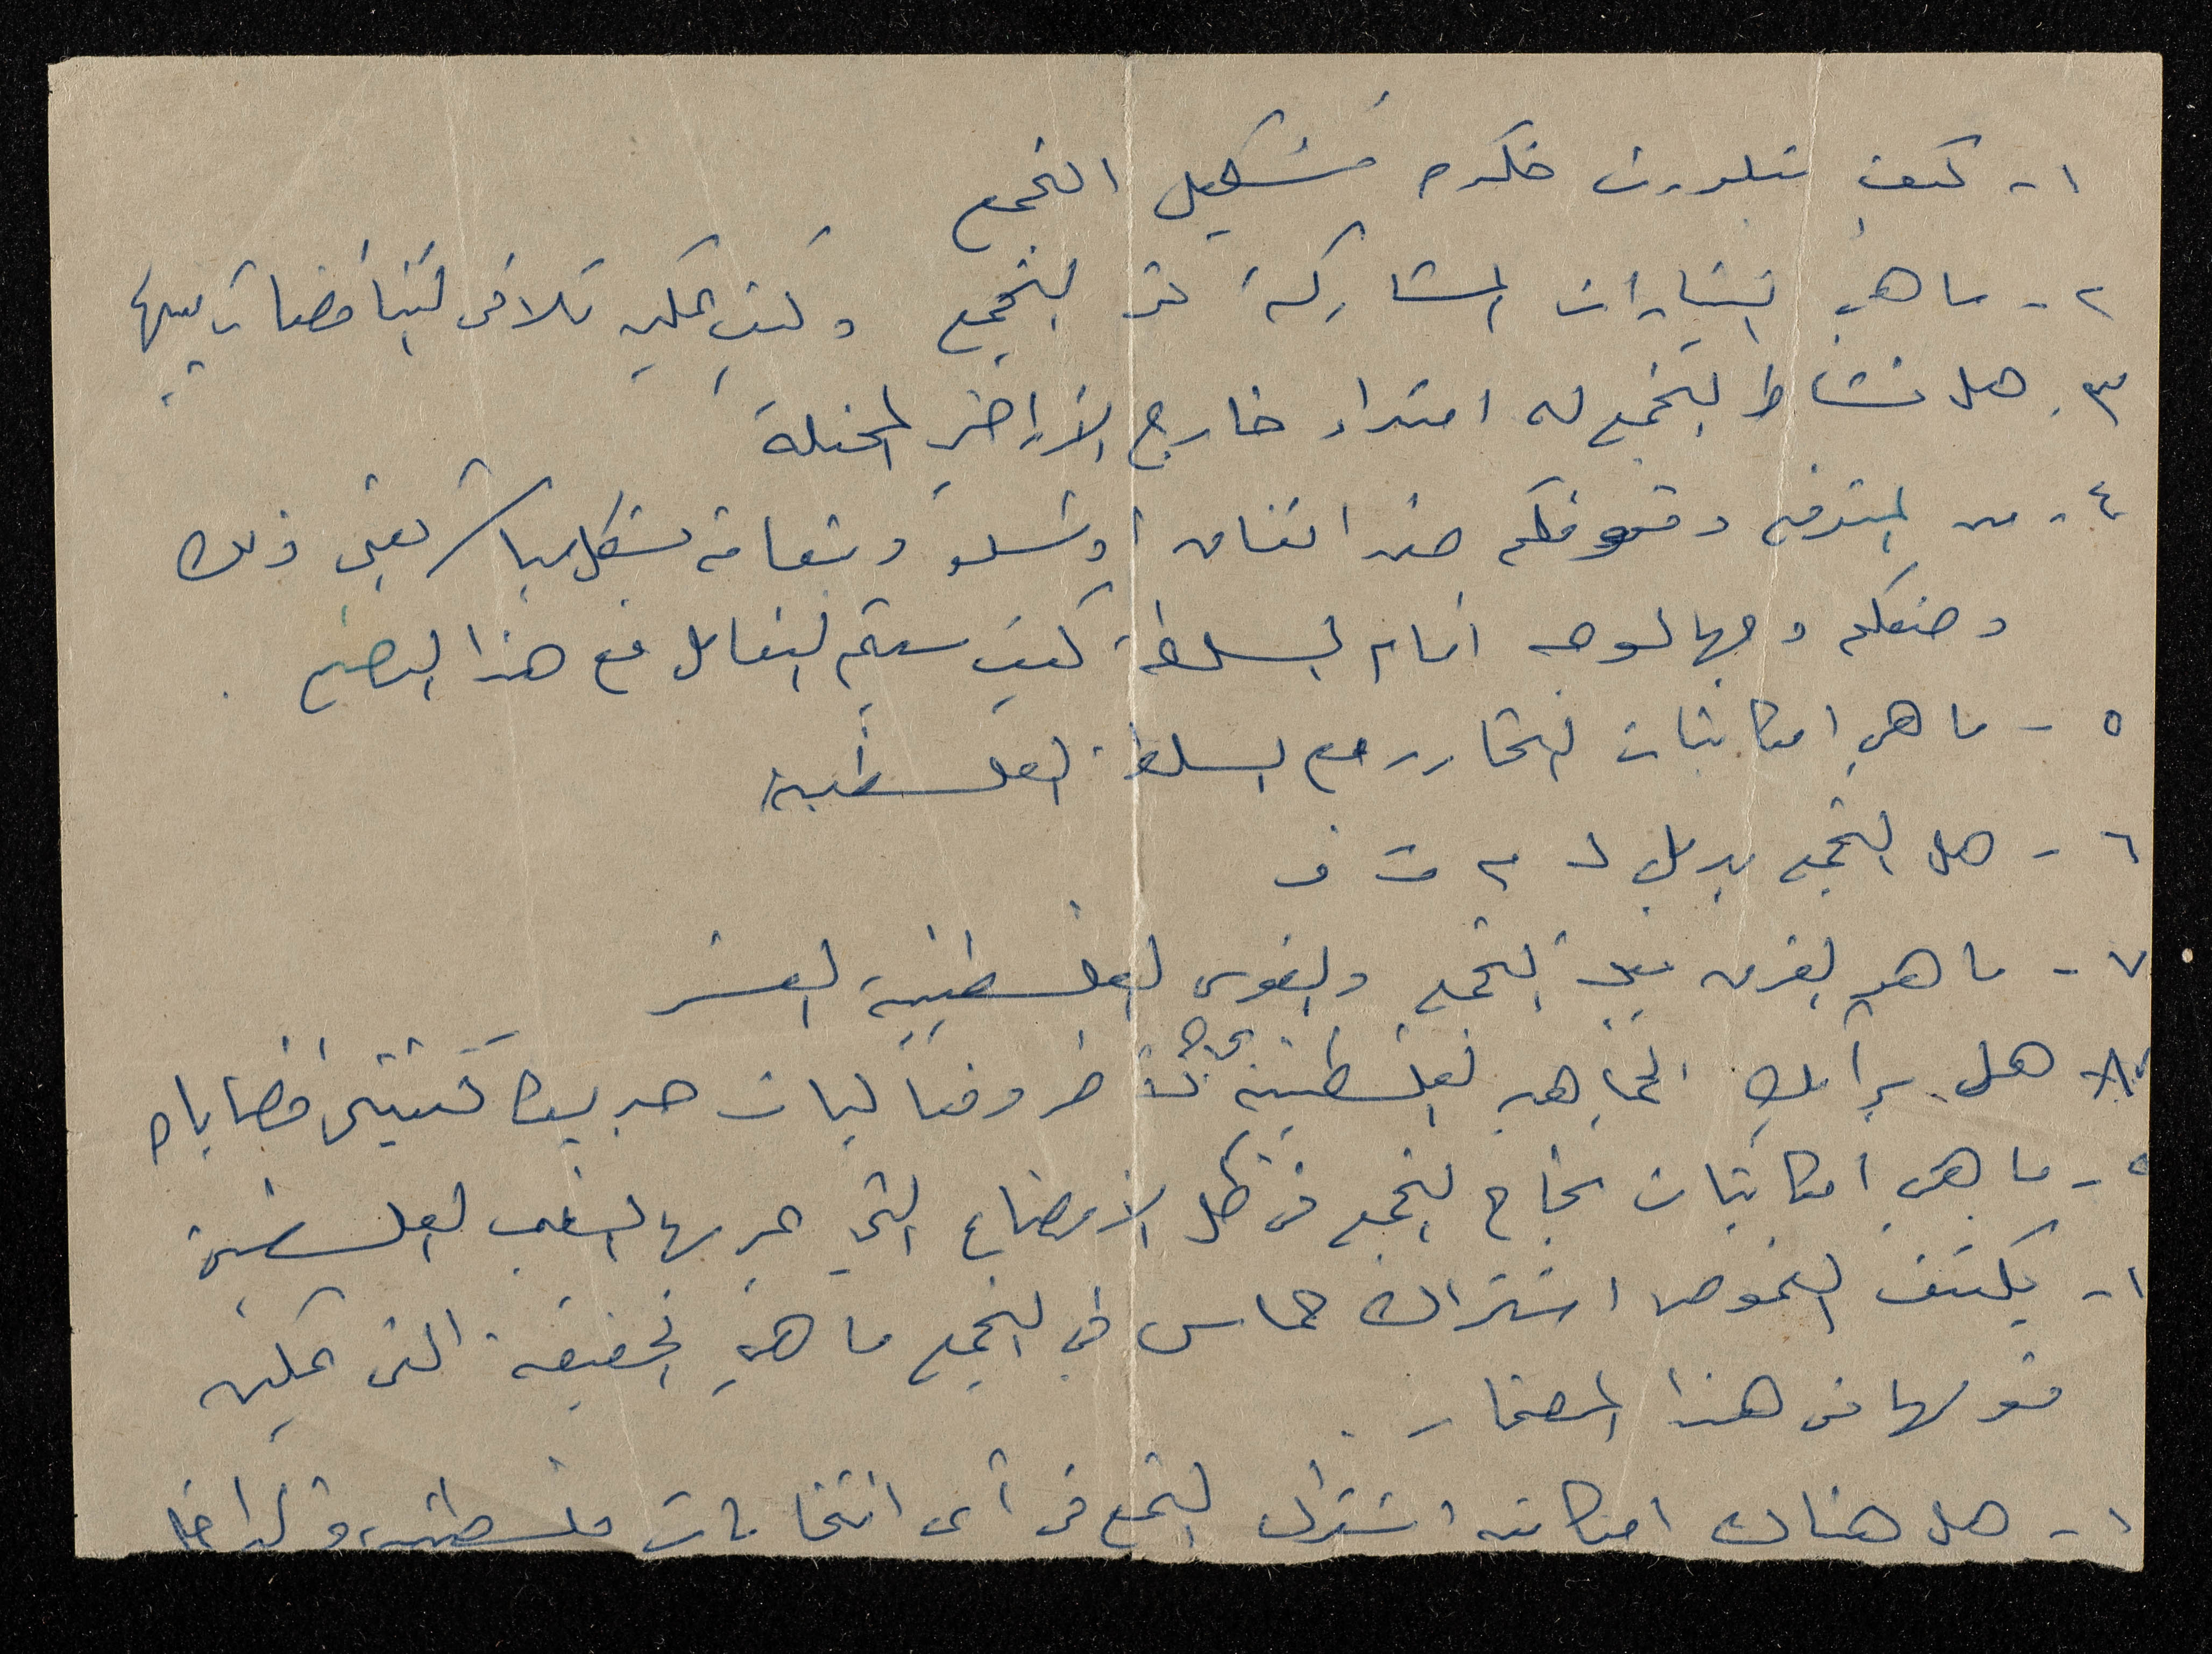 ١- كيف تبلورت فكرة تشكيل التجمع
٢- ما هي التيارات المشاركة في التجمع وكيف يمكن تلافي التناقضات بينها
٣- هل نشاط التجمع له امتداد خارج الأراضي المحتلة
٤- من المعترف وقوفكم ضد اتفاق أوسلو وتبعاته بشكل مباشر يعني ذلك
وضعكم وجها لوجه أمام السلطة كيف سيتم التعامل مع هذا الوضع .
٥ - ما هي امكانيات التحاور مع السلطة الفلسطينية
٦ - هل التجمع بديل ل م ت ف
٧ - ما هو الفرق بين التجمع والقوى الفلسطينية العشر
٨- هل برأيك الجماهير الفلسطينية فعاليات جديدة تتبنى قضاياه
- ما هي امكانيات نجاح التجمع في ظل الأوضاع التي يمر بها الشعب الفلسطيني
١- يكتنف الغموض اشتراك حماس في التجمع ما هي الحقيقة التي يمكن
قولها في هذا المضمار .
١- هل هناك امكانية اشتراك التجمع في أي انتخابات فلسطينية في الداخل